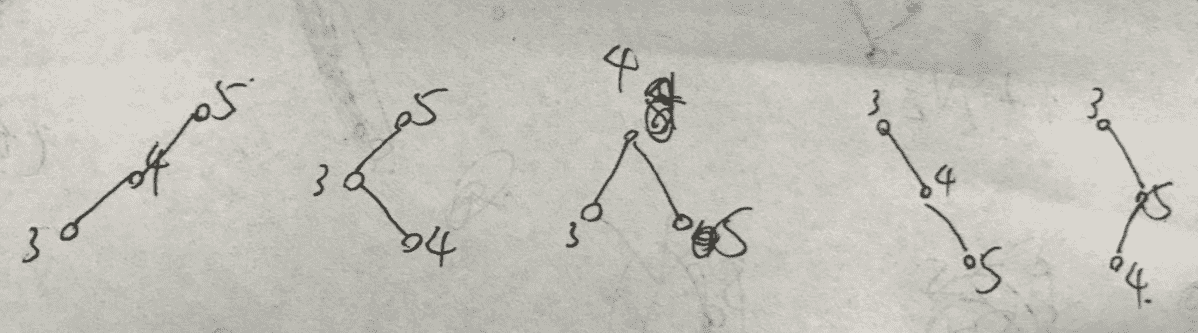 5
4
3
5
3
4
4
3
5
3
4
5
3
5
4.